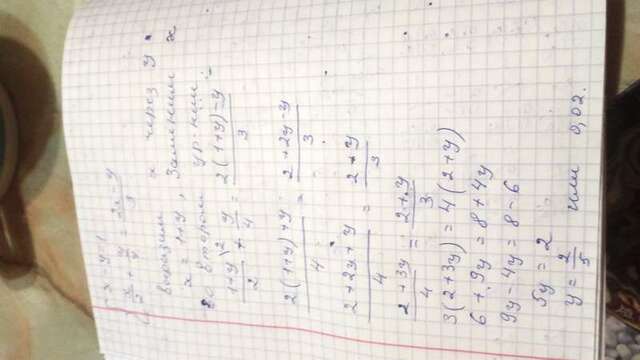 x - y = 1
x/2 + y/4 = (2x - y)/3
выразим x через y.
x = 1+y, Заменим x
во втором ур-нии
(1+y)\2/2 + y/4 = (2(1+y)-y)/3
(2(1+y)+y)/4 = (2+2y-y)/3
(2+2y+y)/4 = (2+y)/3
(2+3y)/4 = (2+y)/3
3(2+3y) = 4(2+y)
6 + 9y = 8 + 4y
9y - 4y = 8 - 6
5y = 2
y = 2/5 или 0,02.